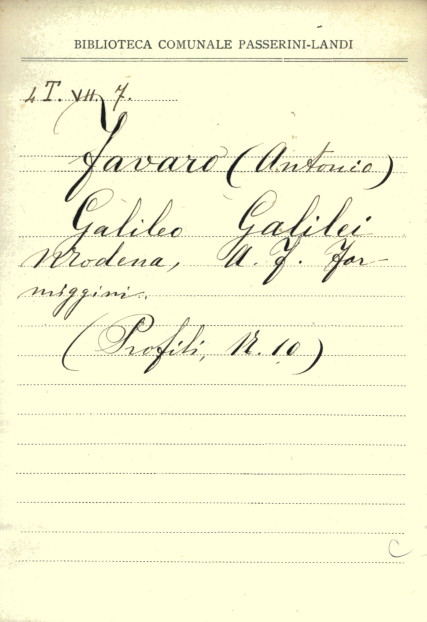 BIBLIOTECA COMUNALE PASSERINI-LANDI
4 T. VII. 7.
Favaro (Antonio)
Galileo Galilei
Modena, A. F. For-
miggini.
(Profili, N. 10)
C